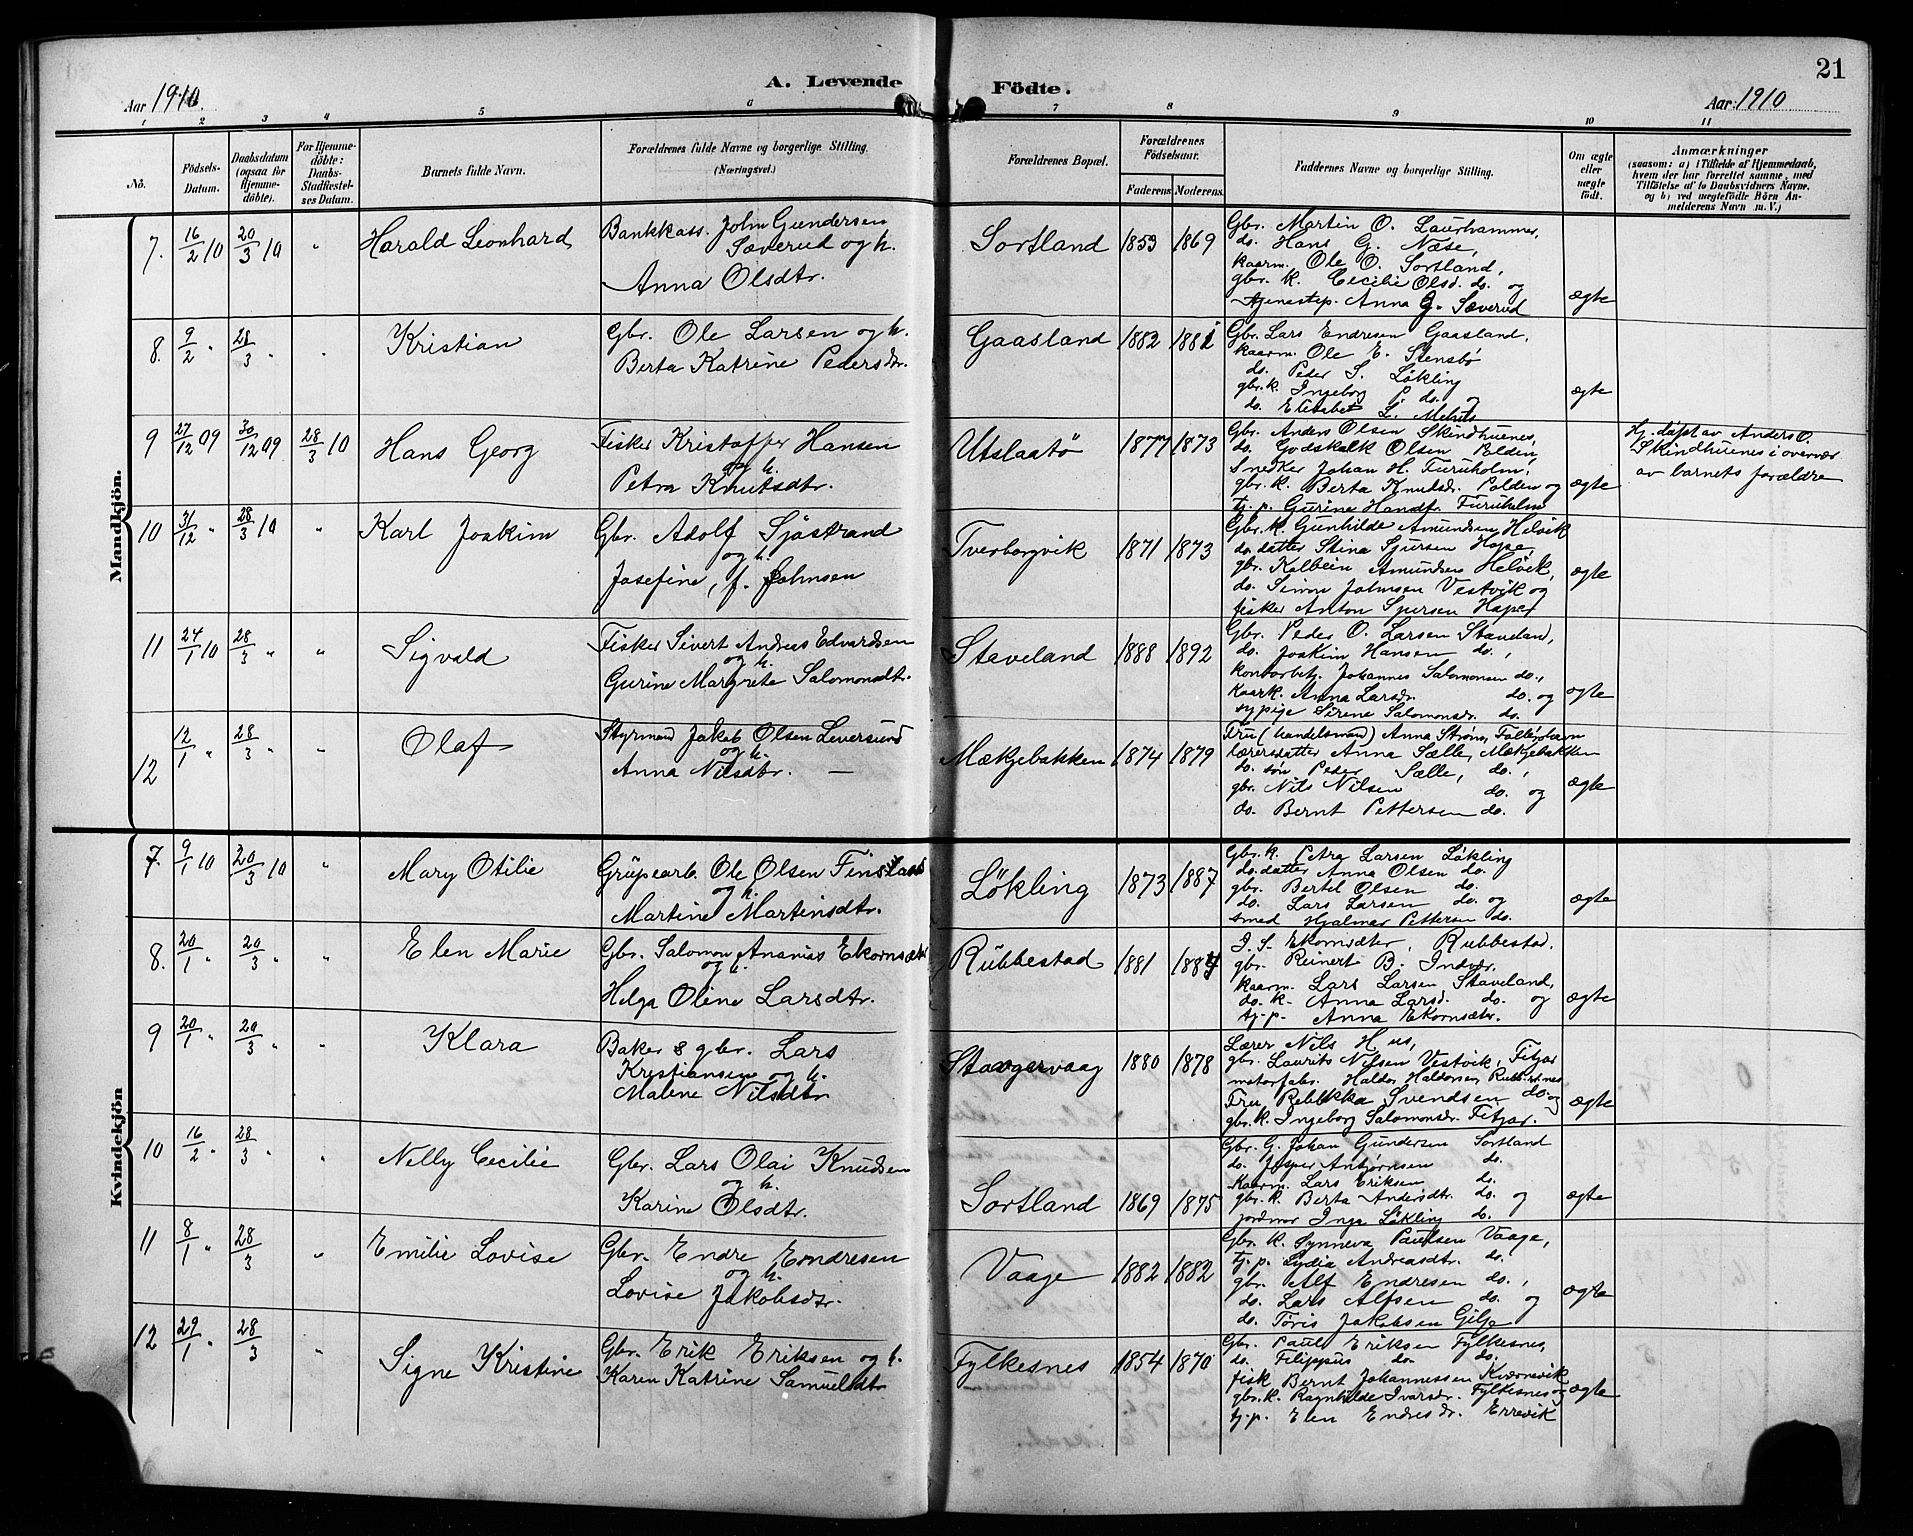 21
Aar 1910.
A. Levende
Födte.
Aar: 1910
1 2 3 4 5 6 7 8 9 10 11
No.
Födsels-
Datum.
Daabsdatum
(ogsaa for
Hjemme-
döbte).
For Hjemme-
döbte:
Daabs-
Stadfæstel-
ses Datum.
Barnets fulde Navn.
Forældrenes fulde Navne og borgerlige Stilling.
(Næringsvei.)
Forældrenes Bopæl.
Forældrenes
Födselsaar.
Faderens.
Moderens.
Faddernes Navne og borgerlige Stilling.
Om ægte
eller
uægte
födt.
Anmærkninger
(saasom: a) i Tilfælde af Hjemmedaab,
hvem der har forrettet samme, med
Tilföielse af to Daabsvidners Navne,
og b) ved uægtefödte Börn An-
melderens Navn m. V.)
Mandkjön.
7. 16/2 10 20/3 10 " Harald Leonhard
Bankkass. John Gundersen
Sæverud og h.
Anna Olsdtr.
Sortland 1853 1869
Gbr. Martin O. Laurhammer,
do. Hans G. Næse,
kaarm. Ole O. Sortland,
gbr. k. Cecilie Olsd. do. og
tjenestep. Anna G. Sæverud
ægte
8. 9/2 " 28/3 " " Kristian
Gbr. Ole Larsen og h.
Berta Katrine Pedersdtr.
Gaasland 1882 1881
Gbr. Lars Endresen Gaasland,
kaarm. Ole E. Stensbö
do. Peder S. Lökling
gbr. k. Ingeborg P. do. og
do. Elisabet L. Melnes
ægte
9 27/12 09 30/12 09 28/3 10 Hans Georg
Fisker Kristoffer Hansen
og h.
Petra Knutsdtr.
Utslaatö 1877 1873
Gbr. Anders Olsen Skindhuenes,
do. Godskalk Olsen Polden,
Snedker Johan H. Furuholm,
gbr. k. Berta Knudsdr. Polden og
tj. p. Gurine Hansdtr. Furuholm
ægte
Hj. döpt av Anders O.
Skindhuenes i overvær
av barnets forældre
10 31/12 " 28/3 10 " Karl Joakim
Gbr. Adolf Sjöstrand
og h.
Josefine, f. Johnsen
Tverborgvik 1871 1873
Gbr. k. Gunhilde Amundsen Helvik
do. datter Stina Sjursen Hope,
gbr. Kolbein Amundsen Helvik,
do. Simon Johnsen Vestvik og
fisker Anton Sjursen Hope
ægte
11 24/1 10 28/3 " " Sigvald
Fisker Sivert Andreas Edvardsen
og h.
Gurine Margrete Salomonsdtr.
Staveland 1888 1892
Gbr. Peder O. Larsen Staveland,
do. Joakim Hansen do.,
kontorbetj. Johannes Salomonsen do.,
kaark. Anna Larsdr. do. og
sypige Sirene Salomonsdr. do.
ægte
12 12/1 " 28/3 " " Olaf
Styrmand Jakob Olsen Leversund
og h.
Anna Nilsdtr. —
Mækjebakken 1874 1879
Fru (handelsmand) Anna Ström,
lærersdatter Anna Sælle, Mækjebakken
do. sön Peder Sælle, do.,
gbr. Nils Nilsen do. og
do. Bernt Pettersen do.
ægte
Kvindekjön
7. 9/1 10 20/3 10 " Mary Otilie
Grupearb. Ole Olsen Finstad
og h.
Martine Martinsdtr.
Lökling 1873 1887
Gbr. k. Petra Larsen Lökling
do. datter Anna Olsen do.
gbr. Bertel Olsen do.
do. Lars Larsen do. og
smed Hjalmar Pettersen do.
ægte
8. 20/1 " 20/3 " " Elen Marie
Gbr. Salomon Ananias Ekornsæter
og h.
Helga Oline Larsdtr.
Rubbestad 1881 1884
J. S. Ekornsæter, Rubbestad.
gbr. Reinert B. Indvær.
kaarm. Lars Larsen Staveland,
do. k. Anna Larsd. do. og
tj. p. Anna Ekornsæter.
ægte
9 20/1 " 20/3 " " Klara
Baker & gbr. Lars
Kristiansen og h.
Malene Nilsdtr.
Stavgervaag 1880 1878
Lærer Nils Hus,
gbr. Laurits Nilsen Vestvik, Fitjar
motorfabr. Haldor Haldorsen,
Fru Rebekka Svendsen do. og
gbr. k. Ingeborg Salomonsdr. Fitjar.
ægte
10 16/2 " 28/3 " " Nelly Cecilie
Gbr. Lars Olai Knudsen
og h.
Karine Olsdtr.
Sortland 1869 1875
Gbr. G. Johan Gundersen Sortland
do. Jesper Anbjörnsen do.
Kaarm. Lars Eriksen do.
gbr. k. Berta Andersdtr. do. og
jordmor Inga Lökling do.
ægte
11 8/1 " 28/3 " Emilie Lovise
Gbr. Endre Endresen
og h.
Lovise Jakobsdtr.
Vaage 1882 1882
Gbr. k. Synneva Paulsen Vaage,
tj. p. Lydia Andreasdtr. do.
gbr. Alf Endresen do.,
do. Lars Alfsen do. og
do. Töris Jakobsen Gilje
ægte
12 29/1 " 28/3 " Signe Kristine
Gbr. Erik Eriksen og h.
Karen Katrine Samuelsdtr
Fylkesnes 1854 1870
Gbr. Paul Eriksen Fylkesnes,
do. Filippus do. do.
fisk. Bernt Johannessen Kværnevik
gbr. k. Ragnhilde Ivarsdr. Fylkesnes og
tj. p. Elen Endresdr. Errevik
ægte